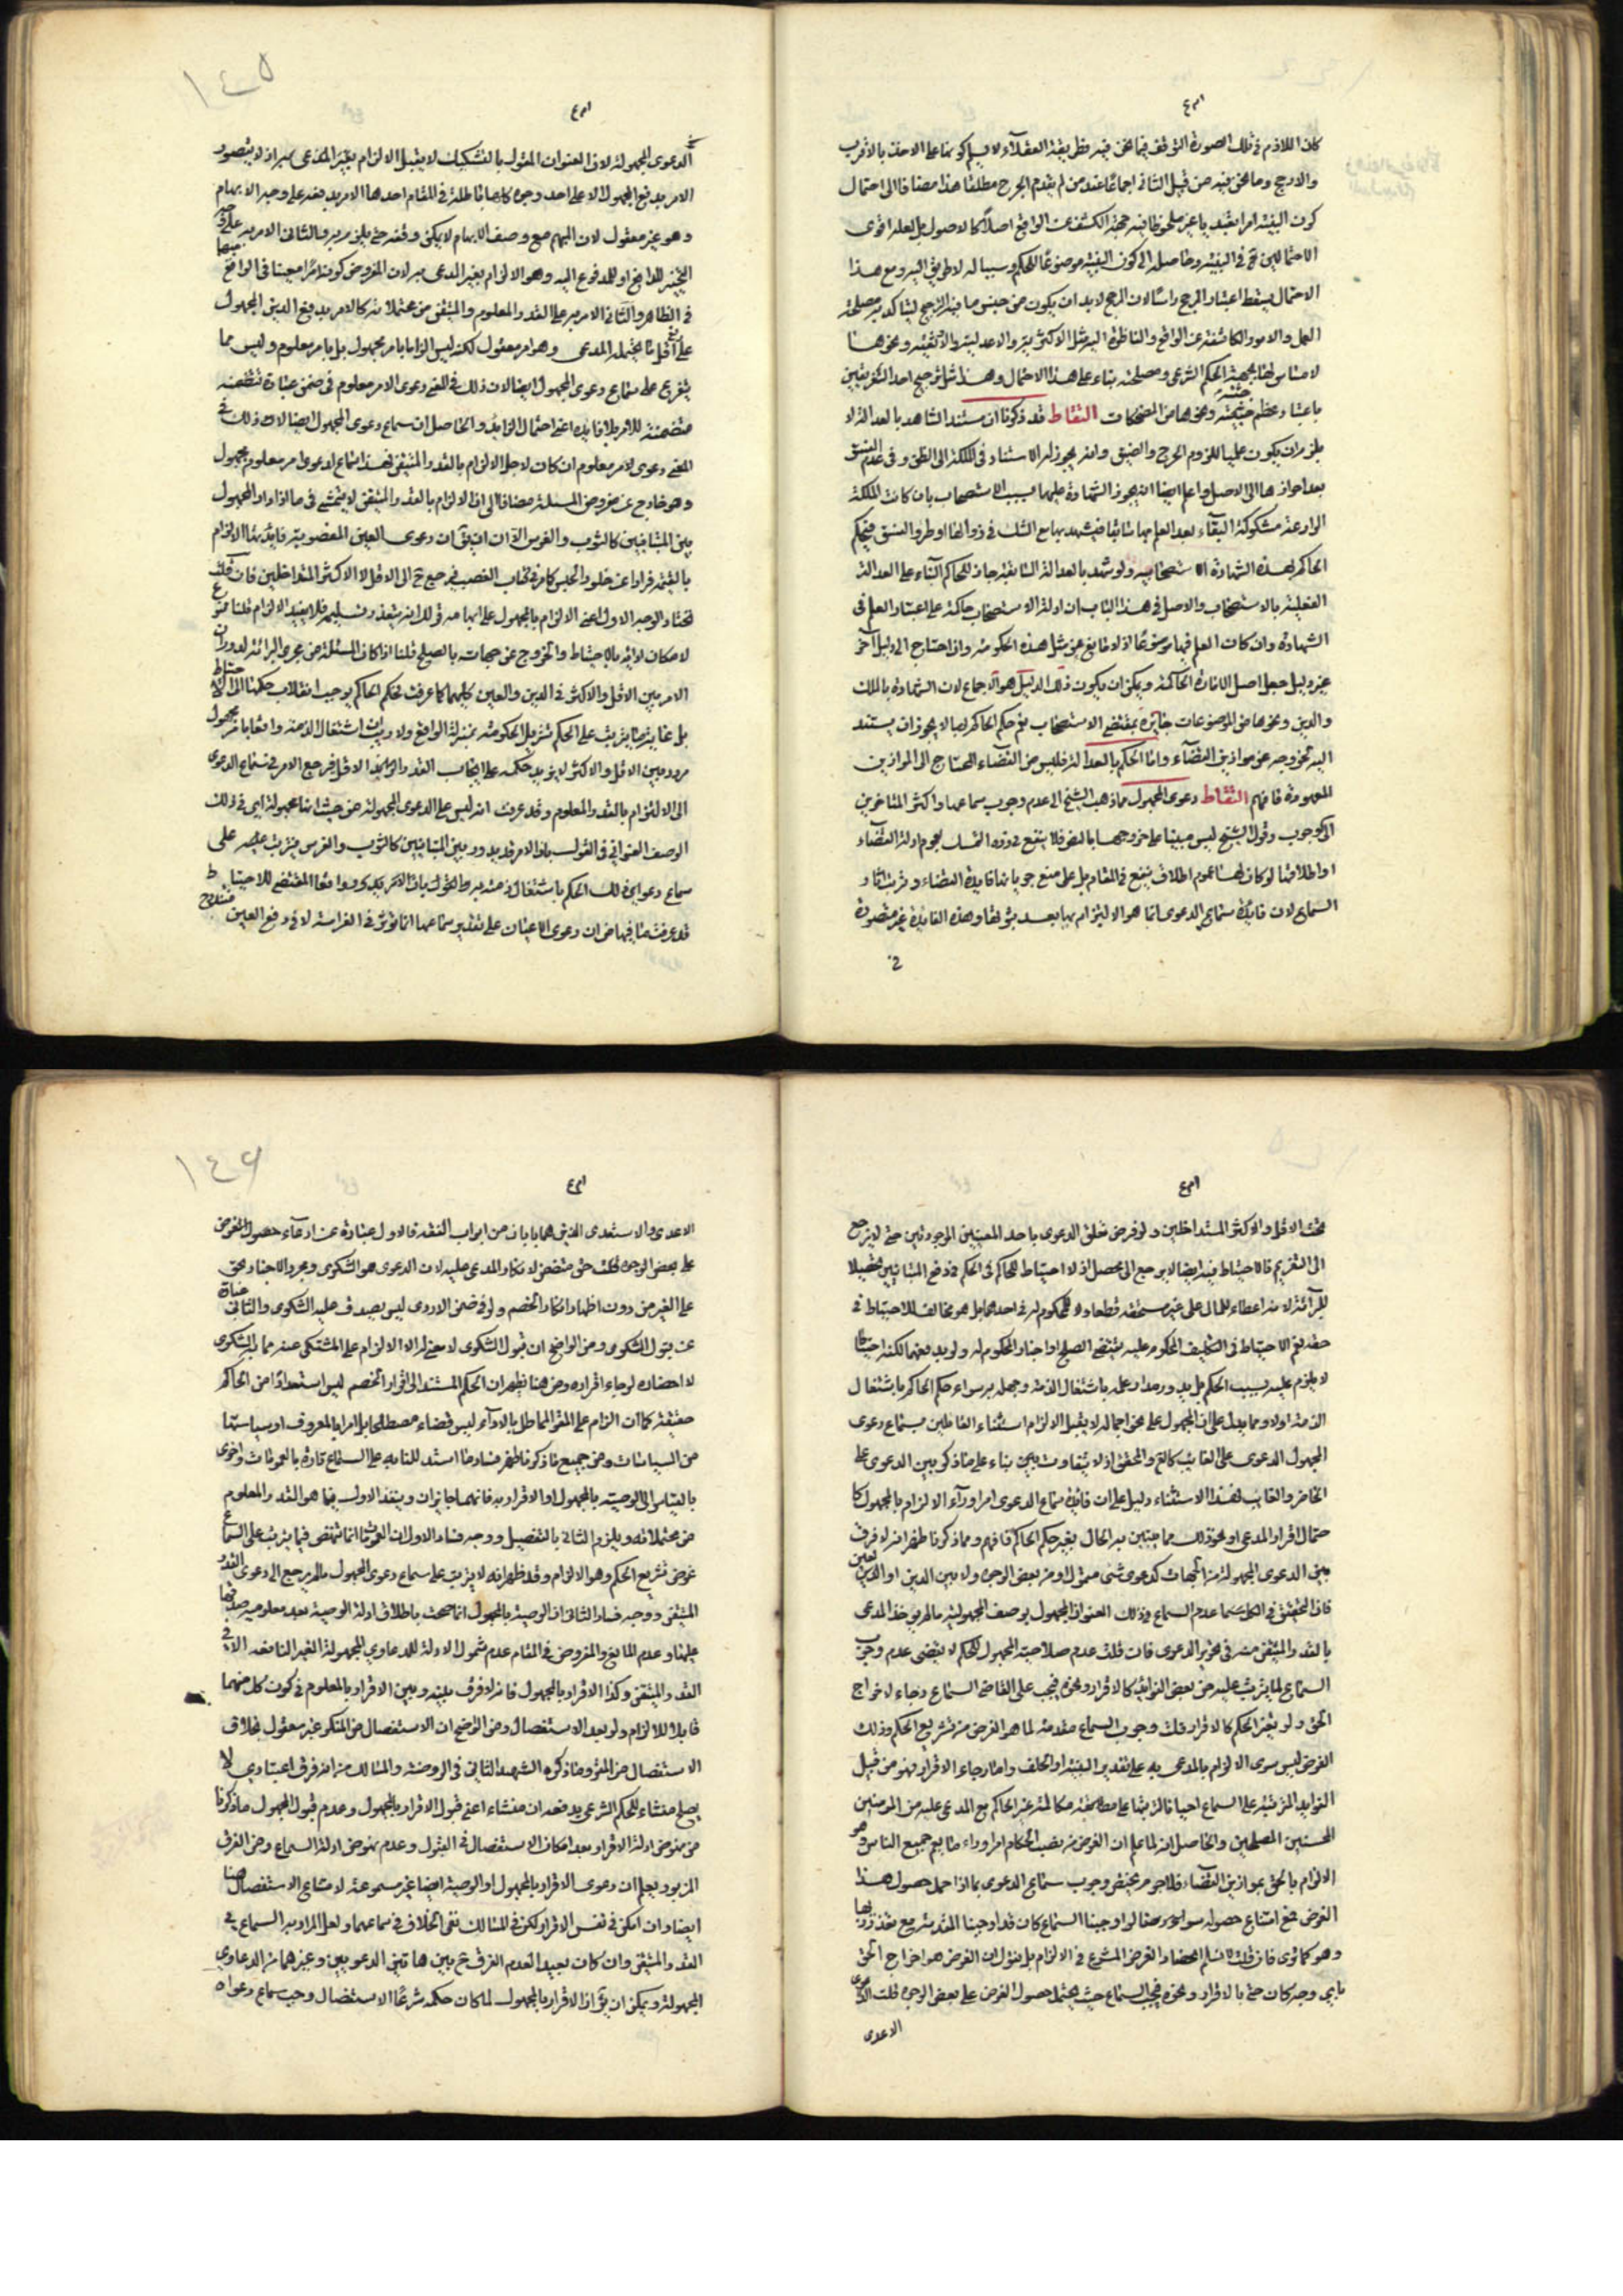 كان اللازم في تلك الصورة التوقف فيما نحن فيه فطريقة العقلاء لا يسلم كونها على الاخذ بالاقرب
والارجح وما نحن فيه من قبيل الثاني اجماعا عند من لم يقدم الجرح مطلقا هذا مضافا الى احتمال
كون البينة امرا تعبديا غير ملحوظ فيه جهة الكشف عن الواقع اصلا كالاصول بل لعله اقوى
الاحتمالين في البينة وحاصله الى كون البينة موضوعا للحكم وسببا له لا طريق اليه ومع هذا
الاحتمال يسقط اعتبار المرجح راسا لان المرجح لابد ان يكون من جنس ما فيه الترجيح لتأكد به مصلحة
العمل والامور الكاشفة عن الواقع والناظرة اليه مثل الاكثرية والاعدلية والاوثقية ونحوها
لا مساس لها بجهة الحكم الشرعي ومصلحته بناء على هذا الاحتمال وهذا مثل ترجيح احد الخبرين
باعتبار عظم جثته ونحوها من المضحكات التقاط قد ذكرنا ان مستند الشاهد بالعدالة لا
يلزم ان يكون علميا للزوم الحرج والضيق وانه يجوز له الاستناد في الملكة الى الظن وفي عدم الفسق
بعد احرازها الى الاصل واعلم ايضا انه يجوز الشهادة عليهما بسبب الاستصحاب بان كانت الملكة
الوارعة مشكوكة البقاء بعد العلم بها سابقا فيشهد بها مع الشك في زوالها او طرو الفسق فيحكم
الحاكم بهذه الشهادة الاستصحابية ولو شهد بالعدالة السابقة جاز للحاكم البناء على العدالة
الفعلية بالاستصحاب والاصل في هذا الباب ان ادلة الاستصحاب حاكمة على اعتبار العلم في
الشهادة وان كان العلم فيها موضوعا اذ لا مانع عن مثل هذه الحكومة واذا احتاج الى دليل آخر
غير دليل جعل اصل الافادة الحاكمة ويمكن ان يكون ذلك الدليل هو الاجماع لان الشهادة بالملك
والدين ونحوها من الموضوعات جائزة بمقتضى الاستصحاب نعم حكم الحاكم بها لا يجوز ان يستند
اليه لخروجه عن موازين القضاء واما الحكم بالعدالة فليس من القضاء المحتاج الى الموازين
المعهودة فافهم التقاط دعوى المجهول مما ذهب الشيخ الى عدم وجوب سماعها واكثر المتاخرين
الى الوجوب وقول الشيخ ليس مبنيا على خروجها بالنص فلا ينفع في رده التمسك بعموم ادلة القضاء
او اطلاقها لو كان لهما عموم اطلاق ينفع في المقام بل على منع جريانها فايدة القضاء وترتب آثار
السماع لان فايدة سماع الدعوى انما هو الالتزام بها بعد ثبوتها وهذه الفايدة غير متصورة
في
الدعوى المجهولة لان العنوان المقول بالتشكيك لا يقبل الالزام بغير المدعى به اذ لا يتصور
الامر بدفع المجهول الا على احد وجوه كلها باطلة في المقام احدها الامر بدفعه على وجه الابهام
وهو غير معقول لان المبهم مع وصف الابهام لا يمكن دفعه حتى يلزم به والثاني الامر به على وجه
التخيير للدافع او للمدفوع اليه وهو الالزام بغير المدعى به لان المفروض كونه امرا معينا في الواقع
في الظاهر والثالث الامر به على القدر المعلوم والمتيقن من محتملاته كالامر بدفع الدين المجهول
على اقل ما يحتمله المدعي وهو امر معقول لكنه ليس الزاما بامر مجهول بل بامر معلوم وليس مما
يتفرع على سماع دعوى المجهول ايضا لان ذلك في المعنى دعوى الامر معلوم في ضمن عبارة
متضمنة للامر بلا فايدة اعني احتمال الزايد والحاصل ان سماع دعوى المجهول ايضا لان ذلك في
المعنى دعوى لامر معلوم ان كان لاجل الالزام بالقدر المتيقن فهذا سماع لدعوى امر معلوم مجهول
وهو خارج عن مفروض المسئلة مضافا الى ان الالزام بالقدر المتيقن لا يتمشى في ما اذا دار المجهول
بين المتباينين كالثوب والفرس الا ان يق ان دعوى العين المغصوبة فايدتها الالزام
بالقيمة فرارا عن خلود الحبس كما مر في كتاب الغصب فيرجع ح الى الاقل والاكثر المتداخلين فان قلت
نختار الوجه الاول اعني الالزام بالمجهول على ابهامه قولك انه يتعذر تسليمه فلا يفيد الالزام قلنا
لامكان لابد بالاحتياط والخروج عن جهات بالصلح قلنا اذا كان المسئلة من مجرى البرائة لدوران
الامر بين الاقل والاكثر في الدين والعين كليهما كما عرفت فحكم الحاكم يوجب انقلاب حكمها الى الاحتياط
بل غاية ما يترتب على الحكم تنزيل المحكوم به بمنزلة الواقع ولا ريب ان اشتغال الذمة واقعا بامر مجهول
مردد بين الاقل والاكثر لا يزيد حكمه على ايجاب القدر الاقل فرجع الامر في سماع الدعوى
الى الالتزام بالقدر المعلوم وقد عرفت انه ليس على الدعوى المجهولة من حيث انها مجهولة ابى في ذلك
الوصف العنواني في القول بان الامر قد يدور بين المتباينين كالثوب والفرس فيترتب عليه على
سماع دعوى ذلك الحكم باشتغال ذمته به والقول بان المقتضي للاحتياط
قد عرفت ما فيها من ان دعوى الاعيان على تقدير سماعها انما تؤثر في الغرامة لا في دفع العين
تحت الاقل والاكثر المتداخلين ولو فرض تعلق الدعوى باحد المعينين الموجودين حتى لا يرجع
الى التغريم فالاحتياط فيه ايضا لا يرجع الى محصل اذ لا احتياط للحاكم في الحكم في دفع المتباينين تحصيلا
للبرائة لانه اعطاء للمال على غير مستحقه قطعا ولا للمحكوم له في احدهما بل هو مخالف للاحتياط في
حقه نعم الاحتياط في التكليف المحكوم عليه يقتضي الصلح او اخبار المحكوم له ولو بدفعهما لكنه احتياط
لا يلزم عليه بسبب الحكم بل يدور مدار علمه باشتغال الذمة وجهله به سواء حكم الحاكم باشتغال
الذمة او لا ومما يدل على ان المجهول على نحو اجماله لا يقبل الالزام استثناء القائلين بسماع دعوى
المجهول الدعوى على الغايب كالمحقق اذ لا يتفاوت بناء على ما ذكر بين الدعوى على
الحاضر والغايب فهذا الاستثناء دليل على ان فايدة سماع الدعوى امر وراء الالزام بالمجهول كا
حتمال اقرار المدعى او نحو ذلك مما يتبين به الحال بغير حكم الحاكم فافهم ومما ذكرنا ظهر انه لا فرق
بين الدعوى المجهولة من الجهات كدعوى شيء متمول او من بعض الوجوه ولا بين الدين او العين
فان التحقيق في الكل عدم السماع في ذلك العنوان المجهول بوصف المجهولية ما لم يوخذ المدعى
بالقدر المتيقن منه في تحرير الدعوى فان قلت عدم صلاحية المجهول للحكم لا يقتضي عدم وجوب
السماع لما يترتب عليه من بعض الفوائد كالاقرار ونحوه فيجب على القاضي السماع رجاء لاخراج
الحق ولو بغير الحكم كالاقرار قلت وجوب السماع مقدمة لما هو الغرض من تشريع الحكم وذلك
الغرض ليس سوى الالزام بالمدعى به على تقدير البينة او الحلف واما رجاء الاقرار فهو من قبيل
الفوايد المترتبة على السماع احيانا مكالمة غير الحاكم مع المدعى عليه من المومنين
المحسنين المصلحين والحاصل انه لما علم ان الغرض من نصب الحكام امر وراء ما يعم جميع الناس وهو
الالزام بالحق بموازين القضاء فلا جرم يختص وجوب سماع الدعوى بما اذا احتمل حصول هذا
الغرض فمع امتناع حصوله لو اوجبنا السماع كان قد اوجبنا المقدمة مع تعذر ذيها
وهو كما ترى فان قلت لا نسلم انحصار الغرض المشرع في الالزام بل نقول ان الغرض هو اخراج الحق
باي وجه كان حتى بالاقرار ونحوه فيجب السماع حيث يحتمل حصول الغرض على بعض الوجوه قلت
الاعدى
الاعدى والاستعدى الذين هما بابان من ابواب الفقه فالاول عبارة عن ادعاء حصول الغرض
على بعض الوجوه قلت حتى متضمن لانكار المدعى عليه لان الدعوى هو الشكوى ومجرد الاخبار بحق
على الغير من دون اظهار انكار الخصم ولو في ضمن الاردى ليس يصدق عليه الشكوى والثاني عبارة
عن قبول الشكوى ومن الواضح ان قبول الشكوى لا معنى له الا الالزام على المشتكى عنه مما به الشكوى
لا احضاره لرجاء اقراره ومن هنا يظهر ان الحكم المستند الى اقرار الخصم ليس استعداءا من الحاكم
حقيقة كما ان الزام على المقر المماطل بالاداء ليس قضاء مصطلحا بل امرا بالمعروف او سياسة
من السياسات ومن جميع ما ذكرنا ظهر فساد ما استدل للقائلين على السماع تارة بالعمومات واخرى
بالقياس الى الوصية بالمجهول او الاقرار به فانهما جائزان وينفذ الاول بما هو القدر المعلوم
من محتملاته ويلزم الثاني بالتفصيل ووجه فساد الاول ان العمومات انما تنهض فيما يترتب على السماع
غرض تشريع الحكم وهو الالزام وقد ظهر انه لا يترتب على سماع دعوى المجهول ما لم يرجع الى دعوى القدر
المتيقن ووجه فساد الثاني ان الوصية بالمجهول انما صحت باطلاق ادلة الوصية بعد معلومية صدقها
عليها وعدم المانع والمفروض في المقام عدم شمول الادلة للدعاوي المجهولة الغير النافعة الا في
القدر المتيقن وكذا الاقرار بالمجهول فانه لا فرق بينه وبين الاقرار بالمعلوم في كون كل منهما
قابلا للالزام ولو بعد الاستفصال ومن الواضح ان الاستفصال من المنكر غير معقول بخلاف
الاستفصال من المقر وما ذكره الشهيد الثاني في الروضة والمسالك من انه فرق اعتباري لا
يصلح منشاء للحكم الشرعي يدفعه ان منشاء اعني قبول الاقرار بالمجهول وعدم قبول المجهول ما ذكرنا
من نهوض ادلة الاقرار بعد امكان الاستفصال في القبول وعدم نهوض ادلة السماع ومن الفرق
المزبور يعلم ان دعوى الاقرار بالمجهول او الوصية ايضا غير مسموعة لامتناع الاستفصال هنا
ايضا وان امكن في نفس الاقرار لكن في المسالك نفى الخلاف في سماعهما ولعل المراد به السماع في
القدر المتيقن وان كان بعيدا لعدم الفرق ح بين هاتين الدعويين وغيرهما من الدعاوي
المجهولة ويمكن ان يق ان الاقرار بالمجهول لما كان حكمه شرعا الاستفصال وجب سماع دعواه